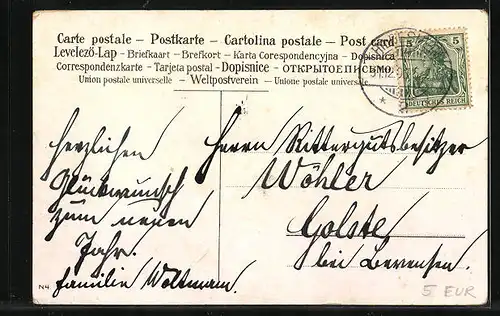 Carte postale – Postkarte – Cartolina postale – Post card
Levelező-Lap - Briefkaart - Brefkort - Karta Corespondencyjna - Dopisnica
Correspondenzkarte - Tarjeta postal - Dopisnice - ОТКРЫТОЕ ПИСЬМО
Union postale universelle - Weltpostverein - Unione postale universale
5 5
DEUTSCHES REICH
Herzlichen
Glückwunsch
zum neuen
Jahr.
Familie Woltmann.
Herrn Rittergutsbesitzer
Wöhler
Golste
bei Bevensen.
N4
5 EUR